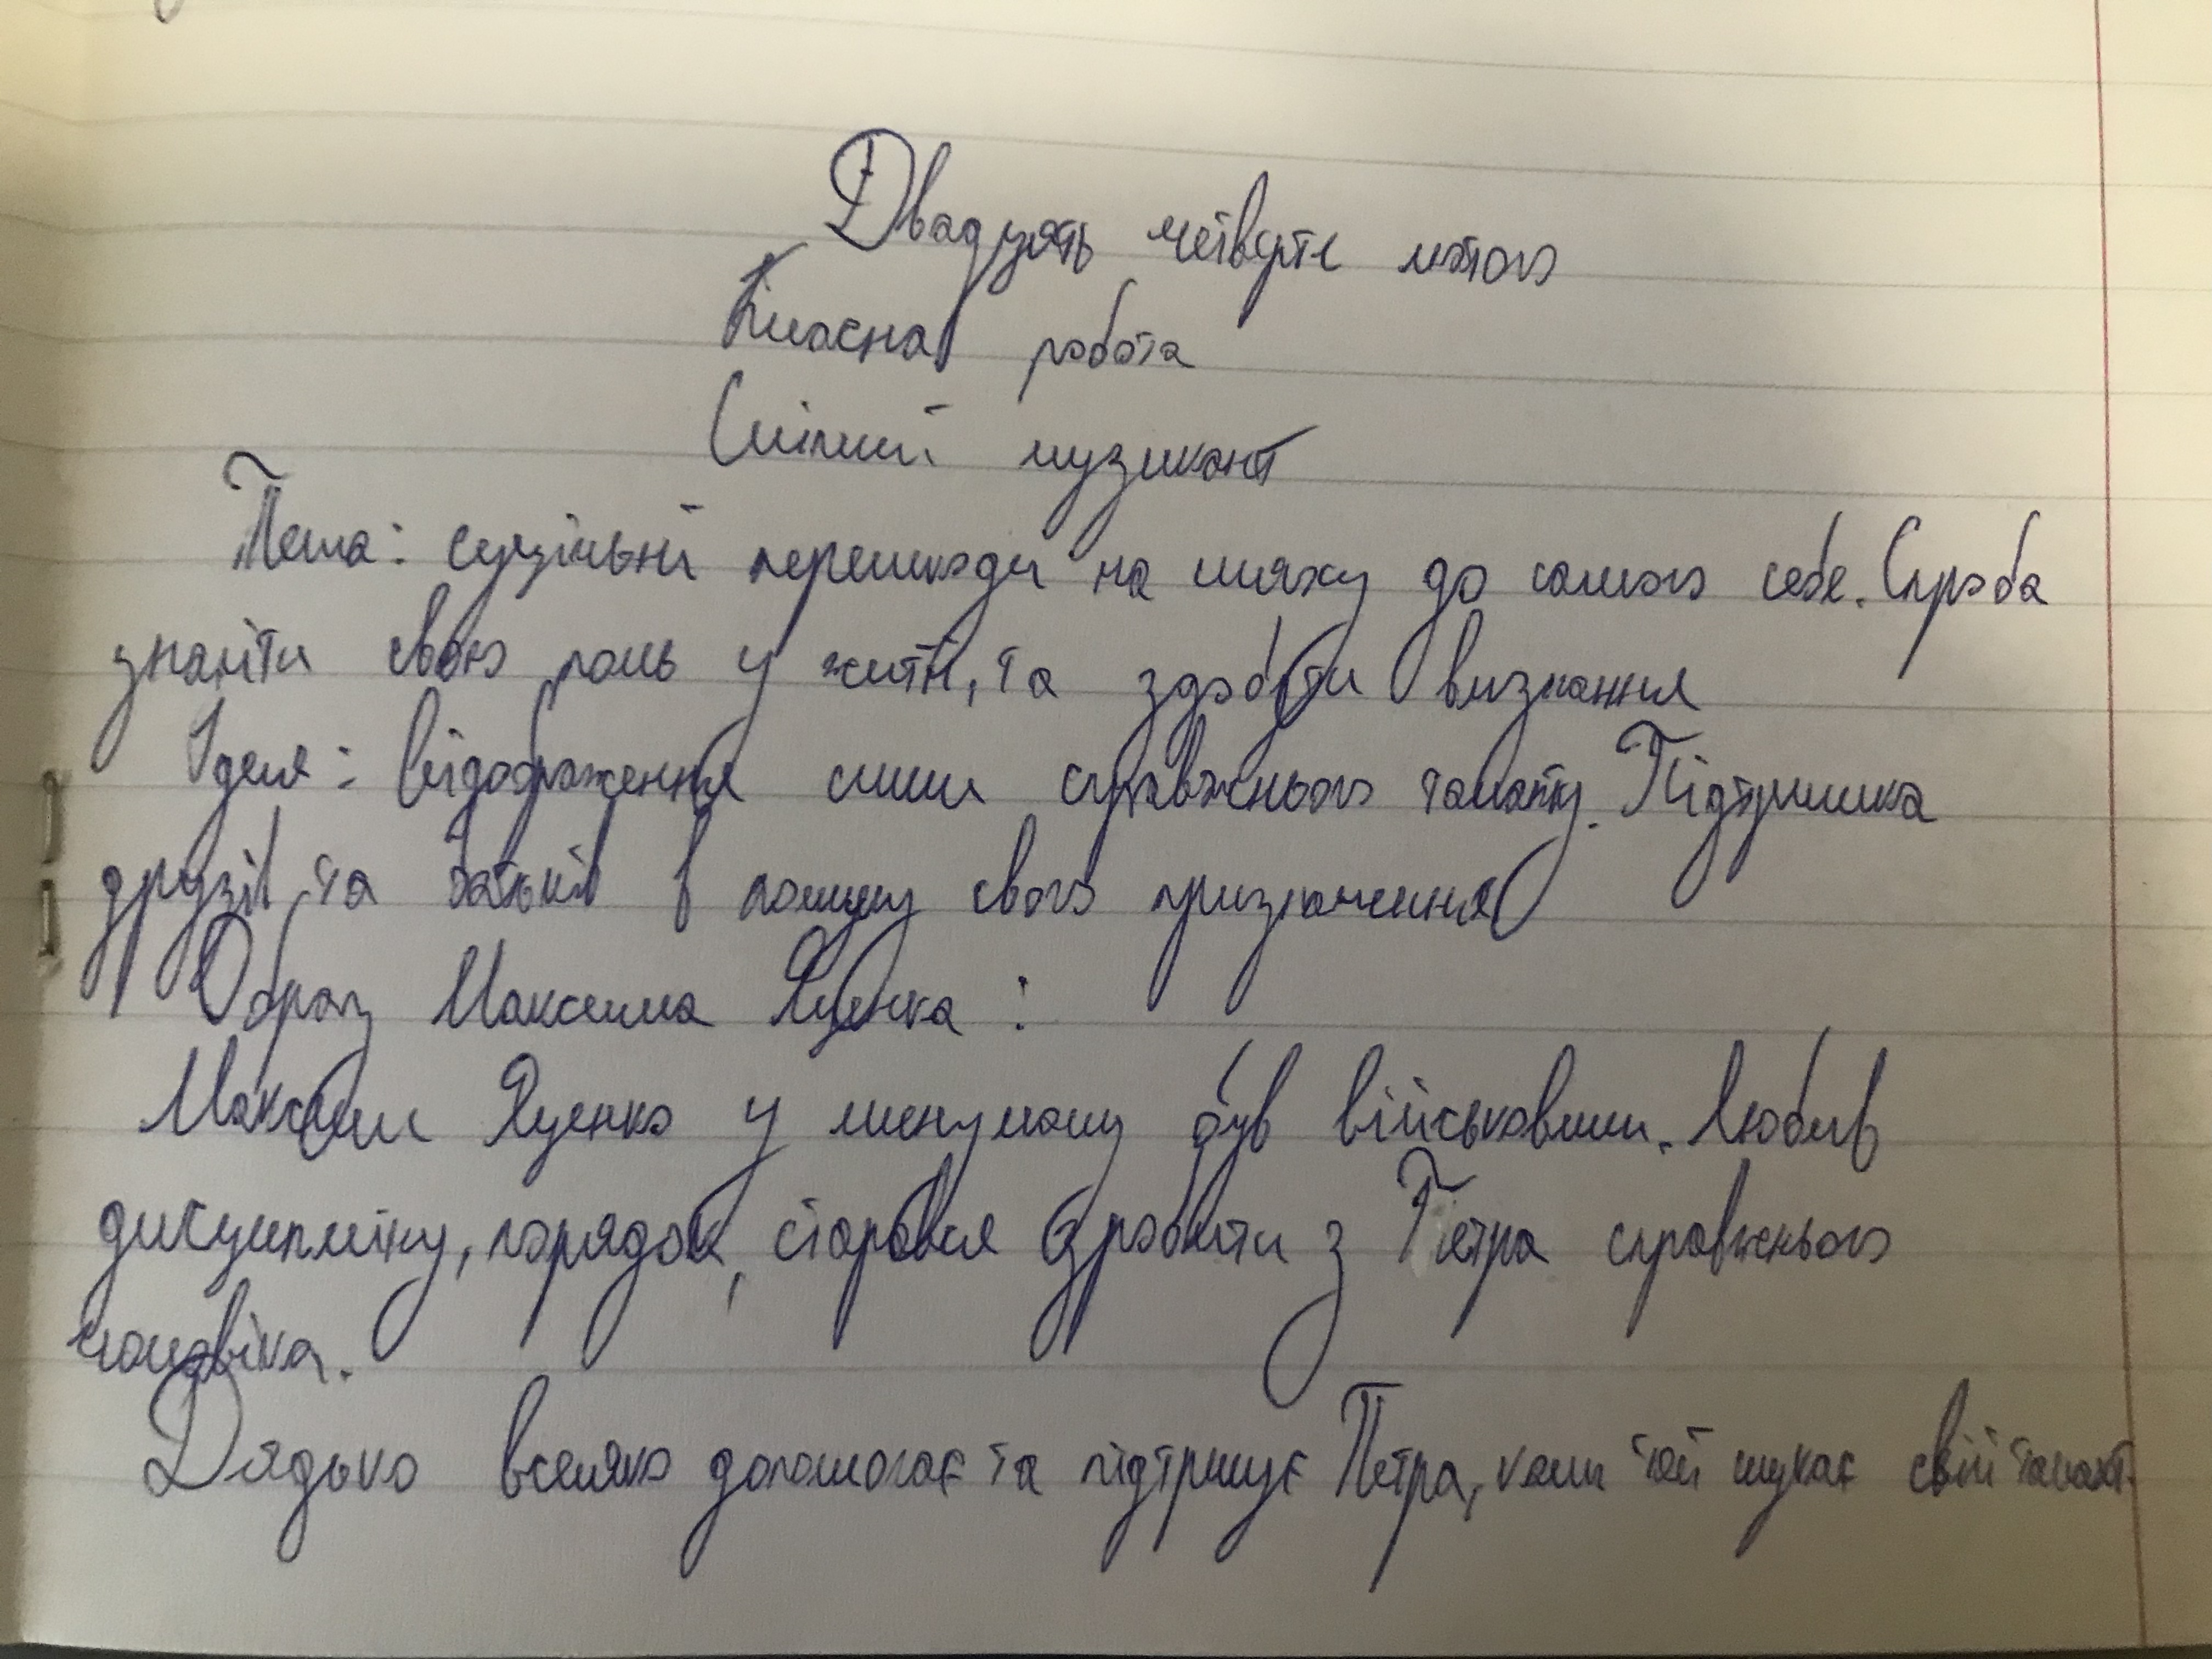 Двадцять четверте лютого
Класна робота
Сліпий музикант
Тема: суцільні перешкоди на шляху до самого себе. Спроба
знайти свою роль у житті, та здобути визнання
Ідея: відображення сили справжнього таланту. Підтримка
друзів та батьків в пошуку свого призначення
Образ Максима Яценка:
Максим Яценко у минулому був військовим. Любив
дисципліну, порядок, старався зробити з Петра справжнього
чоловіка.
Дядько вселяко допомогає та підтримує Петра, коли той шукає свій талант.